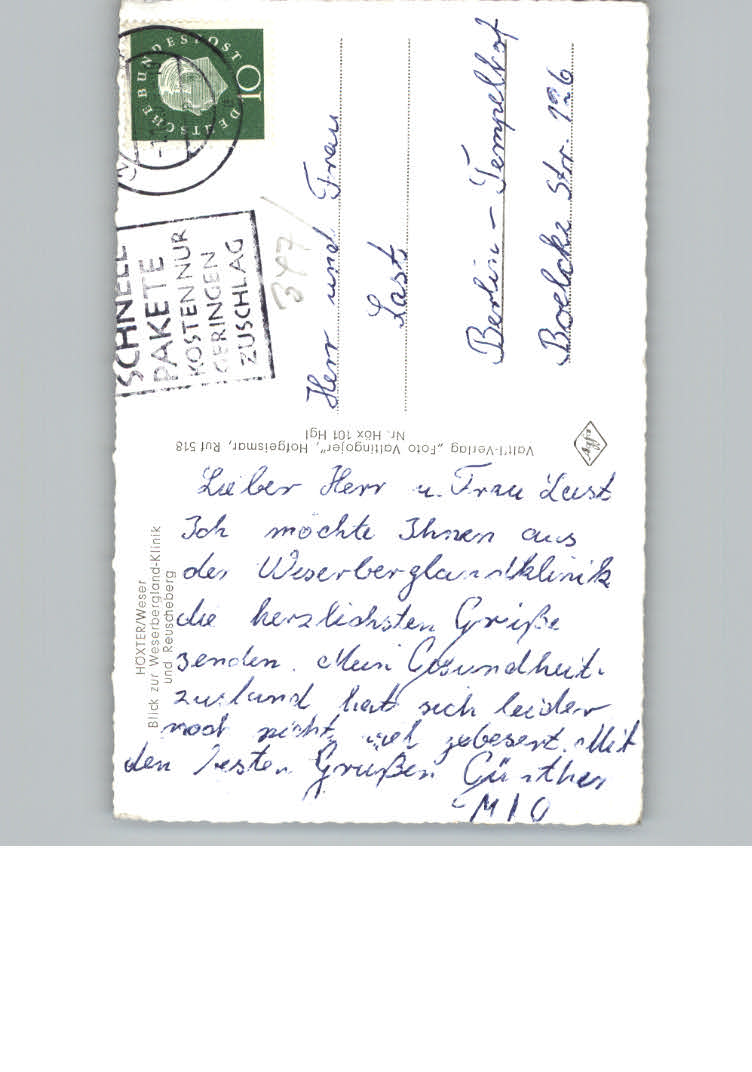 DEUTSCHE BUNDESPOST
10
SCHNELL
PAKETE
KOSTEN NUR
GERINGEN
ZUSCHLAG
347/
Herr und Frau
Last
Berlin - Tempelhof
Boelcke Str. 126
Valt'l-Verlag „Foto Valtingojer", Hofgeismar, Ruf 518
Nr. Höx 101 Hgl
HÖXTER/Weser
Blick zur Weserbergland-Klinik
und Reuscheberg
Lieber Herr u. Frau Last
Ich möchte Ihnen aus
der Weserberglandklinik
die herzlichsten Grüße
senden. Mein Gesundheit-
zustand hat sich leider
noch nicht gebesert. Mit
den besten Grußen Günther